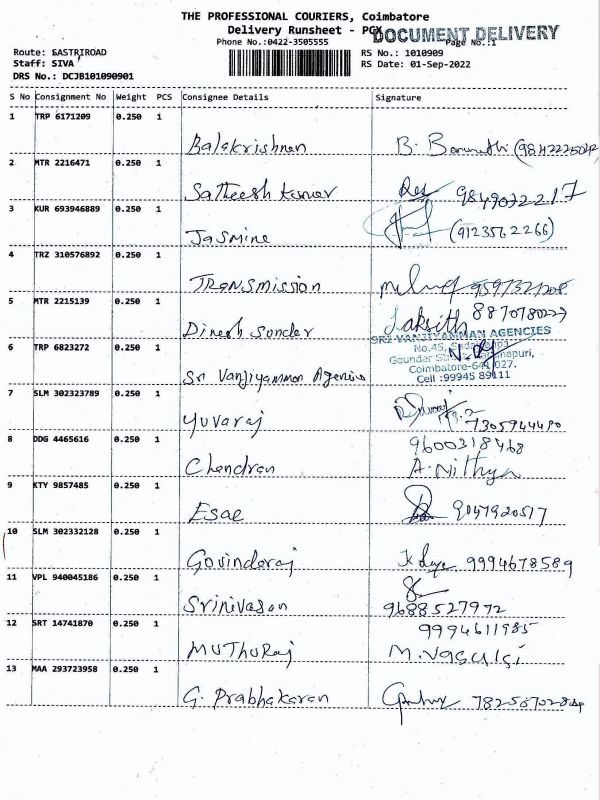 THE PROFESSIONAL COURIERS, Coimbatore
Delivery Runsheet - PGX
DOCUMENT DELIVERY
Phone No.:0422-3505555
Page No.:1
Route: EASTRIROAD
RS No.: 1010909
Staff: SIVA
RS Date: 01-Sep-2022
DRS No.: DCJB101090901
S No Consignment No Weight PCS Consignee Details Signature
1 TRP 6171209 0.250 1
Balakrishnan B.
2 MTR 2216471 0.250 1
Satheesh kumar
3 KUR 693946889 0.250 1
Jasmine (9123562266)
4 TRZ 310576892 0.250 1
TRANSMISSION
5 MTR 2215139 0.250 1
Dinesh Sunder Laksith
SRI VANJIYAMMAN AGENCIES
6 TRP 6823272 0.250 1
No.45,
Gounder
Coimbatore-641 027.
Sri Vanjiyamman Agencies
Cell :99945 89111
7 SLM 302323789 0.250 1
Yuvaraj
8 DDG 4465616 0.250 1
9600318468
Chandran A. Nithya
9 KTY 9857485 0.250 1
Esae
10 SLM 302332128 0.250 1
Govindaraj 9994678589
11 VPL 940045186 0.250 1
Srinivasan 9688527972
12 SRT 14741870 0.250 1
9994611985
MUTHURaj
13 MAA 293723958 0.250 1
G. Prabhakaran